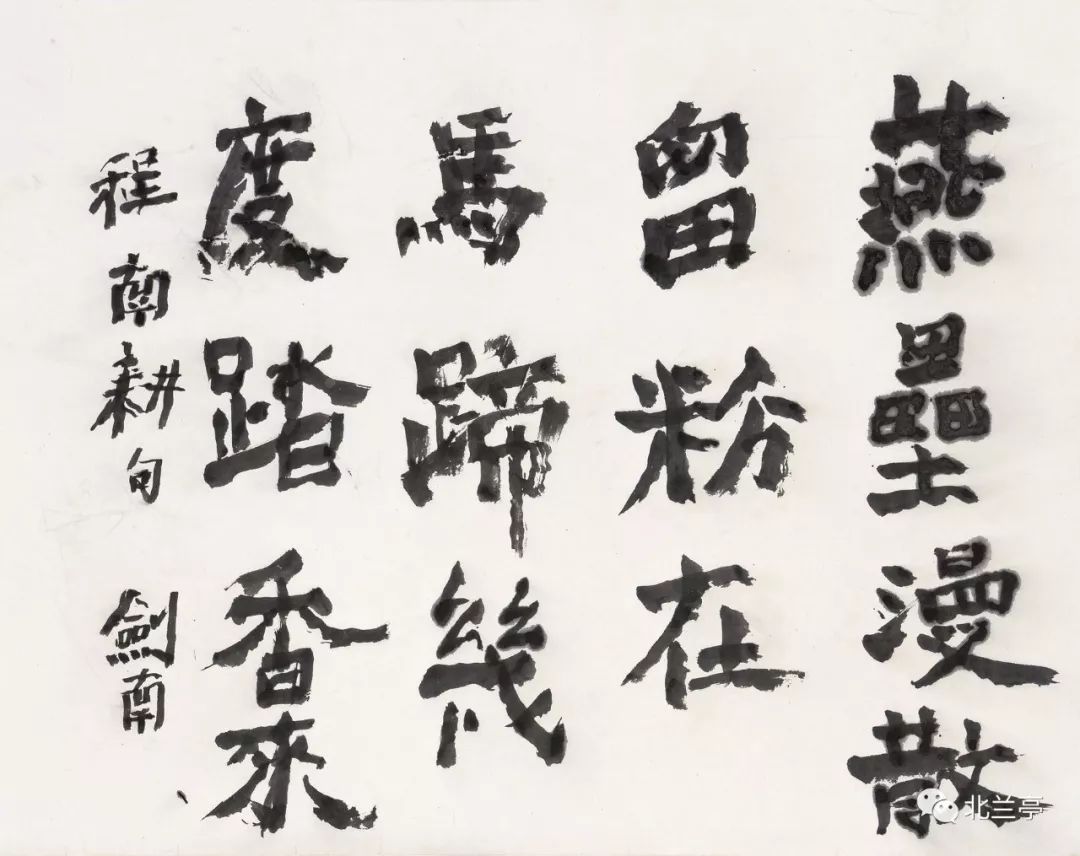 燕壘漫散
留粉在
馬蹄幾
度踏香來
程南耕句 劍南
北兰亭